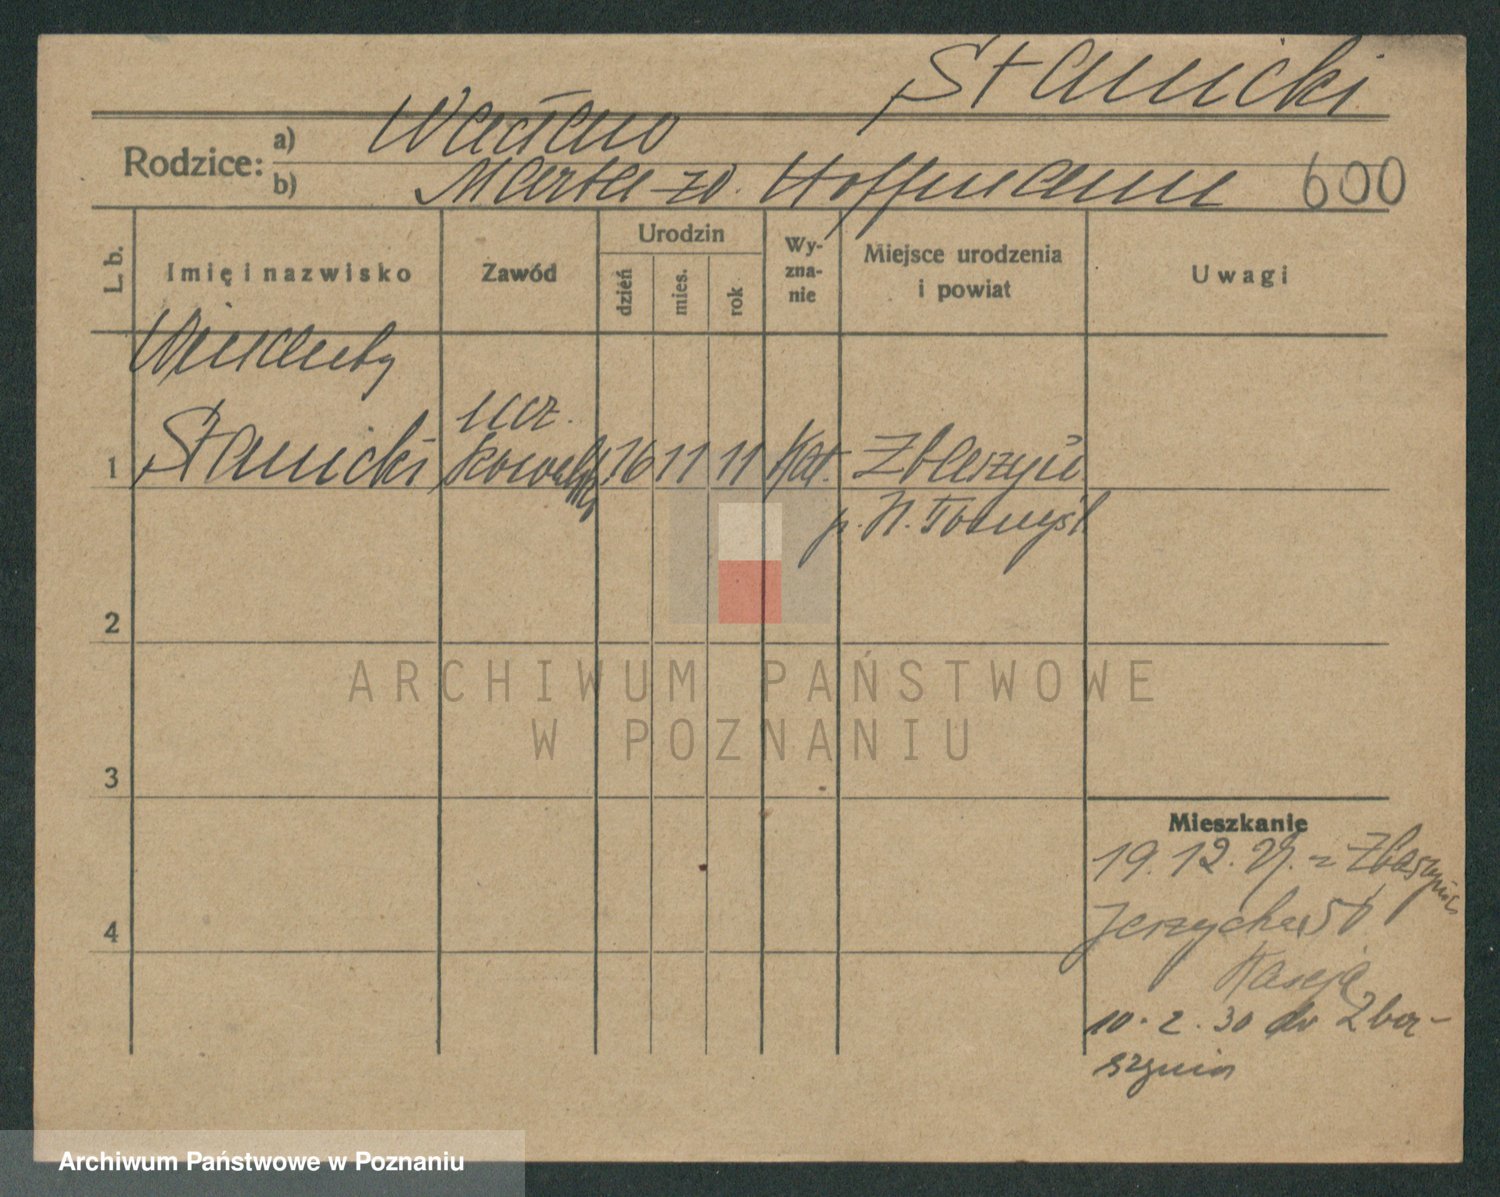 Stanicki
Rodzice:
a) Wacław
b) Marta zd. Hoffmann 600
L. b.
Imię i nazwisko
Zawód
Urodzin
dzień
mies.
rok
Wy-
zna-
nie
Miejsce urodzenia
i powiat
Uwagi
Wincenty
1 Stanicki
ucz.
kowalski
16 11 11 Kat. Zbąszyń
p. N. Tomyśl
2
3
4
ARCHIWUM PAŃSTWOWE
W POZNANIU
Mieszkanie
19.12.29. z Zbąszynia
10.2.30 do Zbą-
szynia
Archiwum Państwowe w Poznaniu